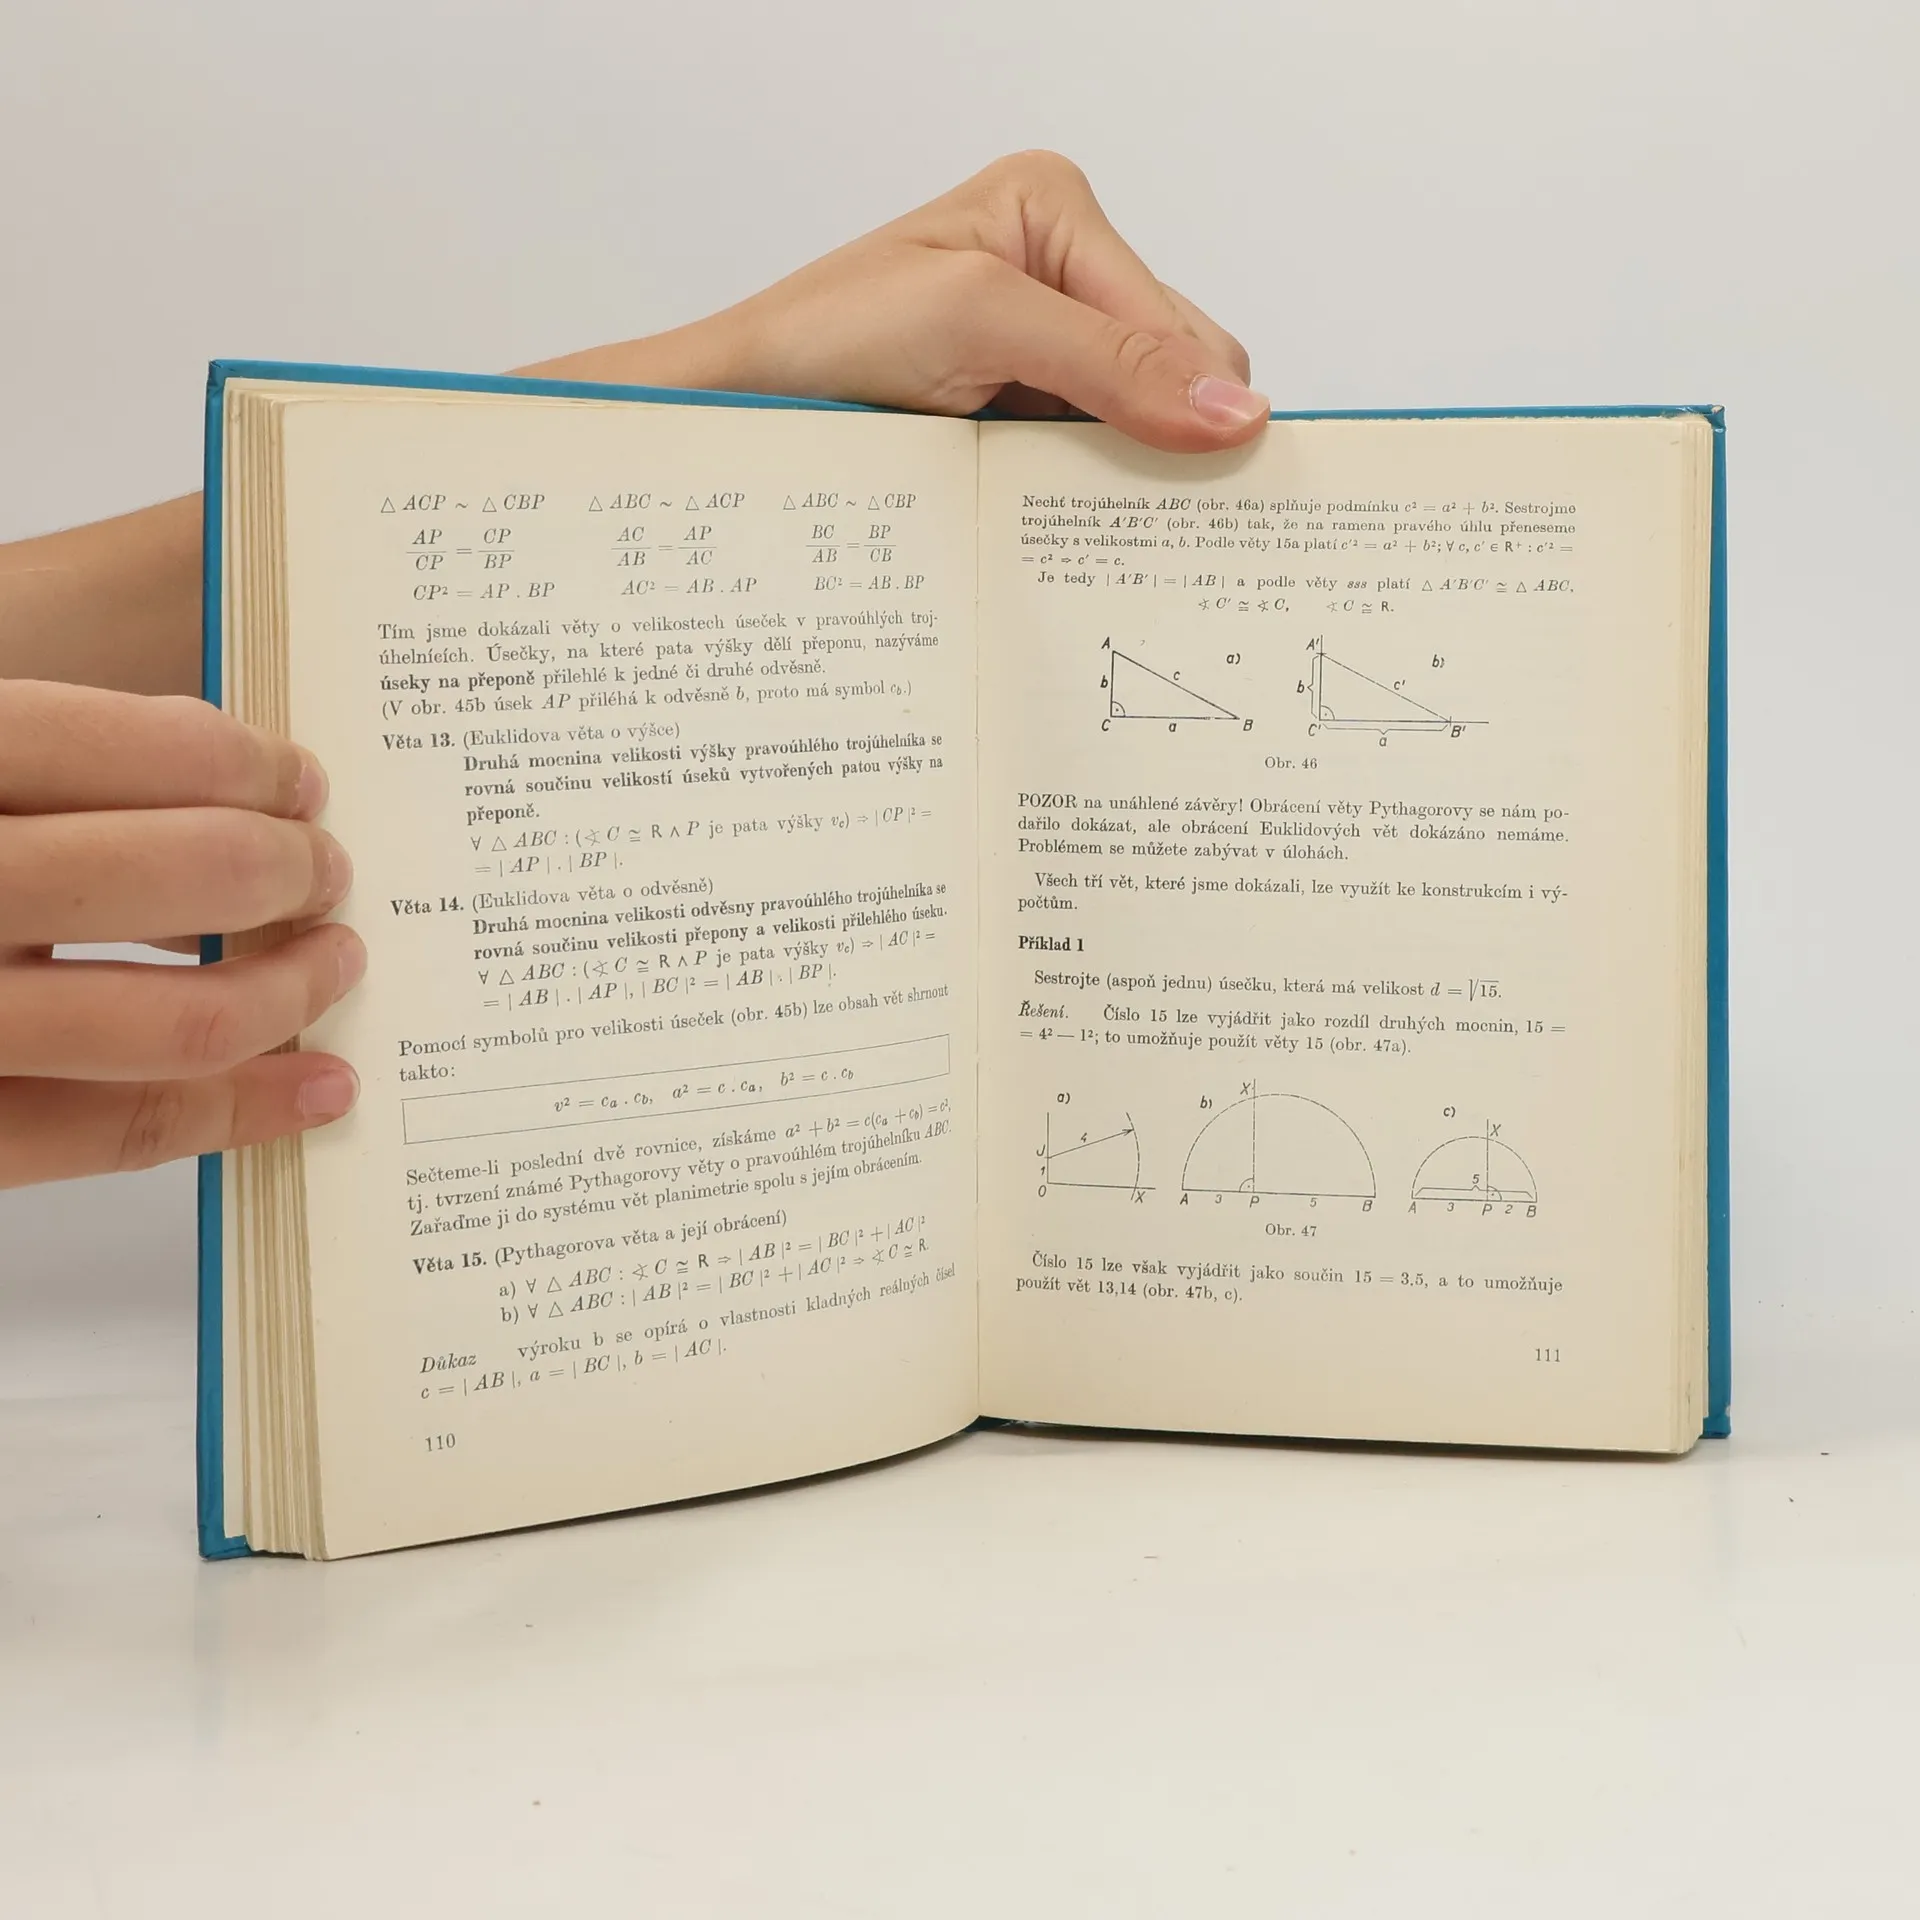 △ ACP ~ △ CBP   △ ABC ~ △ ACP   △ ABC ~ △ CBP
AP/CP = CP/BP   AC/AB = AP/AC   BC/AB = BP/CB
CP² = AP . BP   AC² = AB . AP   BC² = AB . BP
Tím jsme dokázali věty o velikostech úseček v pravoúhlých troj-
úhelnících. Úsečky, na které pata výšky dělí přeponu, nazýváme
úseky na přeponě přilehlé k jedné či druhé odvěsně.
(V obr. 45b úsek AP přiléhá k odvěsně b, proto má symbol c_b.)
Věta 13. (Euklidova věta o výšce)
Druhá mocnina velikosti výšky pravoúhlého trojúhelníka se
rovná součinu velikostí úseků vytvořených patou výšky na
přeponě.
∀ △ ABC : (∢ C ≅ R ∧ P je pata výšky v_c) ⇒ | CP |² =
= | AP | . | BP |.
Věta 14. (Euklidova věta o odvěsně)
Druhá mocnina velikosti odvěsny pravoúhlého trojúhelníka se
rovná součinu velikosti přepony a velikosti přilehlého úseku.
∀ △ ABC : (∢ C ≅ R ∧ P je pata výšky v_c) ⇒ | AC |² =
= | AB | . | AP |, | BC |² = | AB | . | BP |.
Pomocí symbolů pro velikosti úseček (obr. 45b) lze obsah vět shrnout
takto:
v² = c_a . c_b, a² = c . c_a, b² = c . c_b
Sečteme-li poslední dvě rovnice, získáme a² + b² = c(c_a + c_b) = c²,
tj. tvrzení známé Pythagorovy věty o pravoúhlém trojúhelníku ABC.
Zařaďme ji do systému vět planimetrie spolu s jejím obrácením.
Věta 15. (Pythagorova věta a její obrácení)
a) ∀ △ ABC : ∢ C ≅ R ⇒ | AB |² = | BC |² + | AC |²
b) ∀ △ ABC : | AB |² = | BC |² + | AC |² ⇒ ∢ C ≅ R.
Důkaz výroku b se opírá o vlastnosti kladných reálných čísel
c = | AB |, a = | BC |, b = | AC |.
110
Nechť trojúhelník ABC (obr. 46a) splňuje podmínku c² = a² + b². Sestrojme
trojúhelník A'B'C' (obr. 46b) tak, že na ramena pravého úhlu přeneseme
úsečky s velikostmi a, b. Podle věty 15a platí c'² = a² + b²; ∀ c, c' ∈ R⁺ : c'² =
= c² ⇒ c' = c.
Je tedy | A'B' | = | AB | a podle věty sss platí △ A'B'C' ≅ △ ABC,
∢ C' ≅ ∢ C, ∢ C ≅ R.
A b c a) C a B
A' b c' b) C' a B'
Obr. 46
POZOR na unáhlené závěry! Obrácení věty Pythagorovy se nám po-
dařilo dokázat, ale obrácení Euklidových vět dokázáno nemáme.
Problémem se můžete zabývat v úlohách.
Všech tří vět, které jsme dokázali, lze využít ke konstrukcím i vý-
počtům.
Příklad 1
Sestrojte (aspoň jednu) úsečku, která má velikost d = √15.
Řešení. Číslo 15 lze vyjádřit jako rozdíl druhých mocnin, 15 =
= 4² — 1²; to umožňuje použít věty 15 (obr. 47a).
a) J 4 1 O X
b) X A 3 P 5 B
c) X 5 A 3 P 2 B
Obr. 47
Číslo 15 lze však vyjádřit jako součin 15 = 3.5, a to umožňuje
použít vět 13,14 (obr. 47b, c).
111